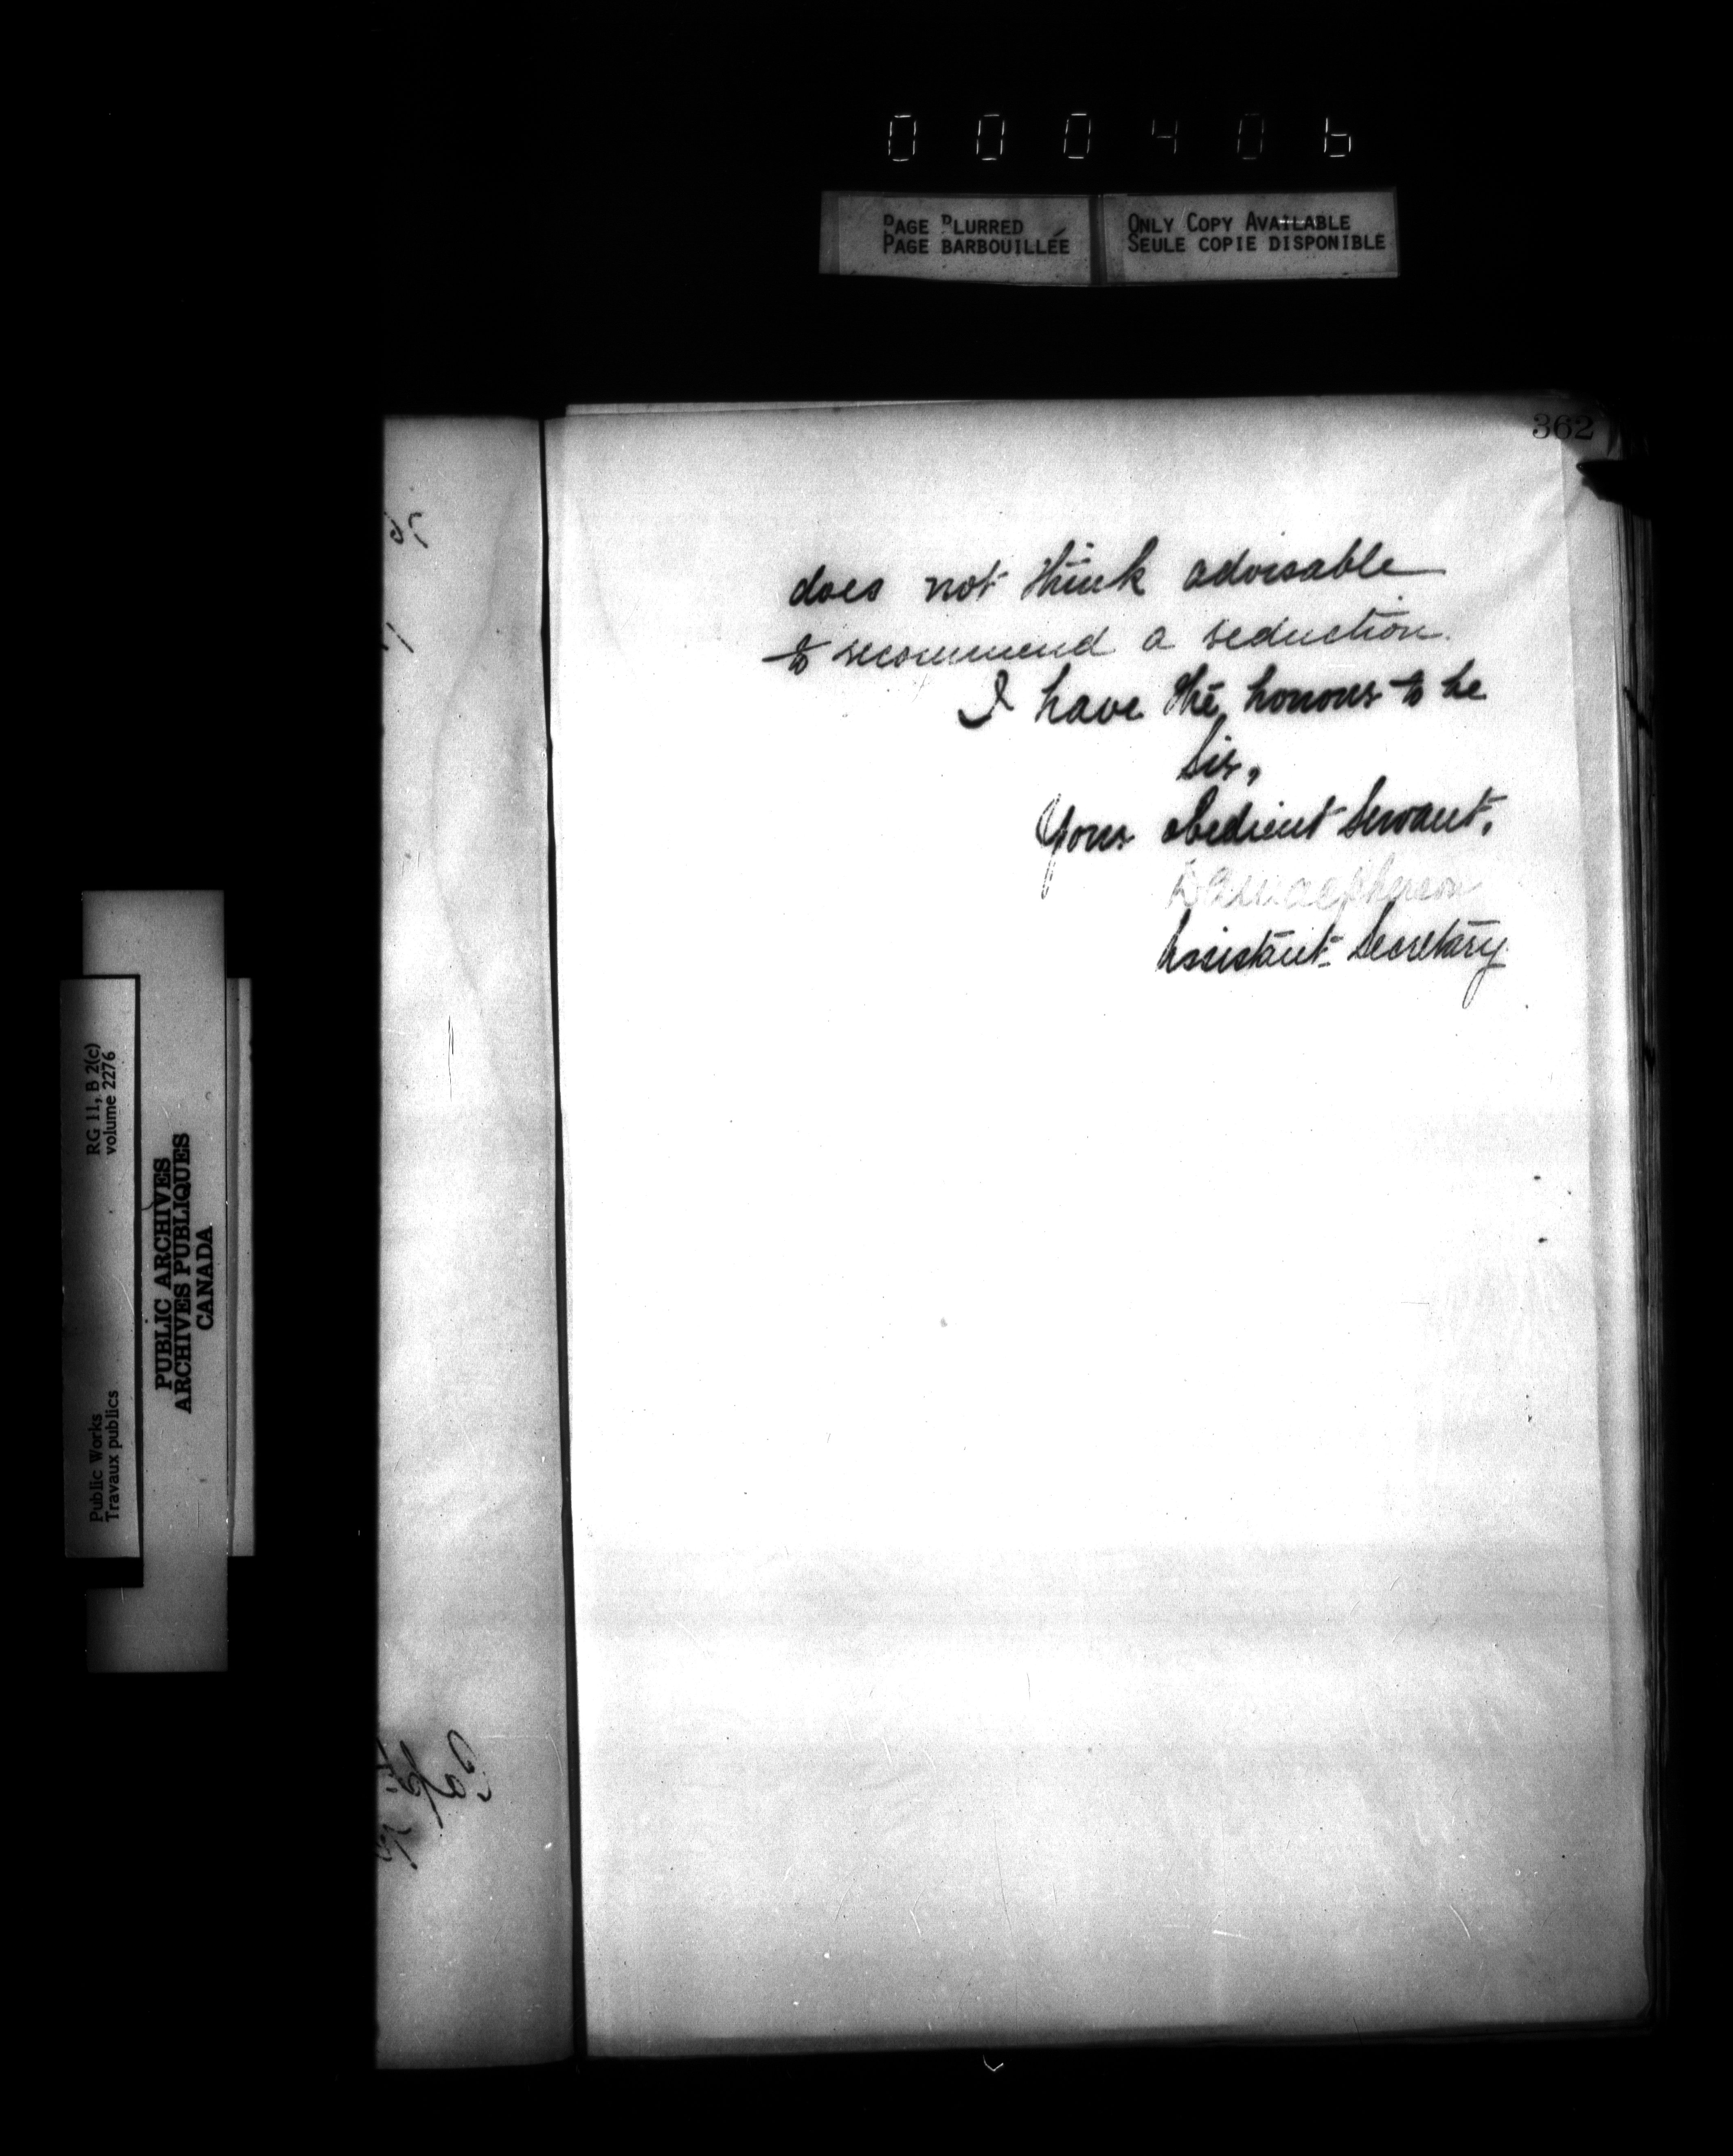 000406
PAGE BLURRED
PAGE BARBOUILLÉE
ONLY COPY AVAILABLE
SEULE COPIE DISPONIBLE
362
does not think advisable
to recommend a reduction.
I have the honour to be
Sir,
Your obedient Servant,
Assistant Secretary
RG 11, B 2(c)
volume 2276
PUBLIC ARCHIVES
ARCHIVES PUBLIQUES
CANADA
Public Works
Travaux publics